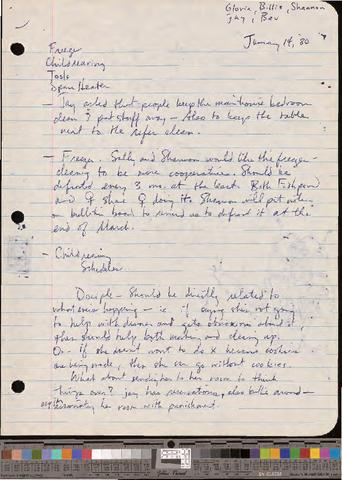 Gloria, Billie, Shannon
Jay, Bev
January 14, '80
Freezer
Childrearing
Tools
Space Heater
- Jay asked that people keep the main house bedroom
clean & put stuff away - Also to keep the table
next to the refer clean.
- Freezer. Sally and Shannon would like the freezer-
cleaning to be more cooperative. Should be
defrosted every 3 mo. at the least. Both Fishpond
and share doing it. Shannon will put note
on bulletin board to remind us to defrost it at the
end of March.
- Childrearing
Schedules
- Should be directly related to
what's happening - ie if saying she's not going
to help with dinner and gets obnoxious about it,
should help both making and cleaning up.
Or - If she doesn't want to do X because cookies
are being made, then she can go without cookies.
What about sending her to her room to think
things over? Jay has reservations, also balks around -
associating her room with punishment.